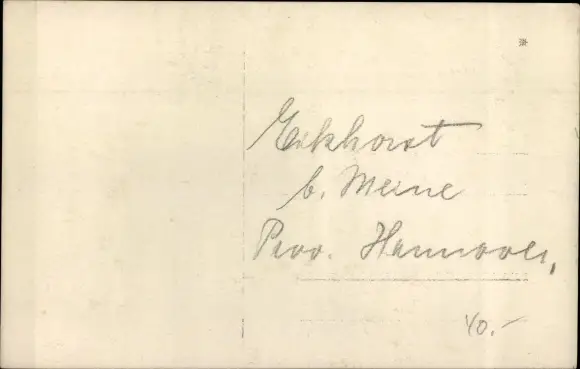 Eickhorst
b. Meine
Prov. Hannover,
40.-